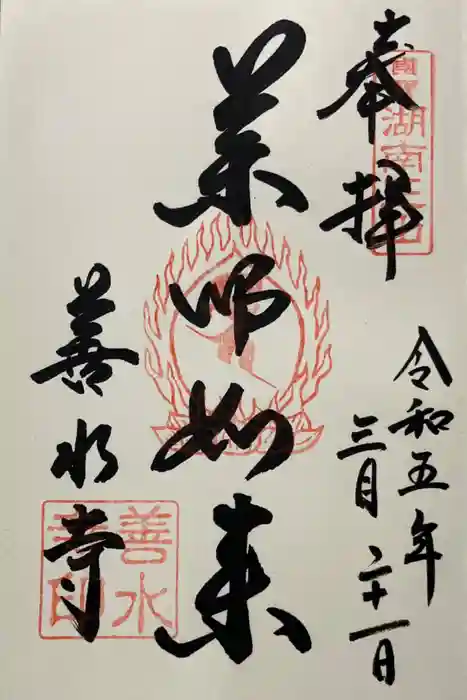 奉拝
湖南三山
令和五年
三月二十一日
薬師如来
善水寺
善水寺印